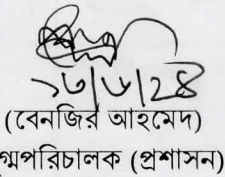 ১৩/৮/২৪
(বেনজির আহমেদ)
গ্মপরিচালক (প্রশাসন)